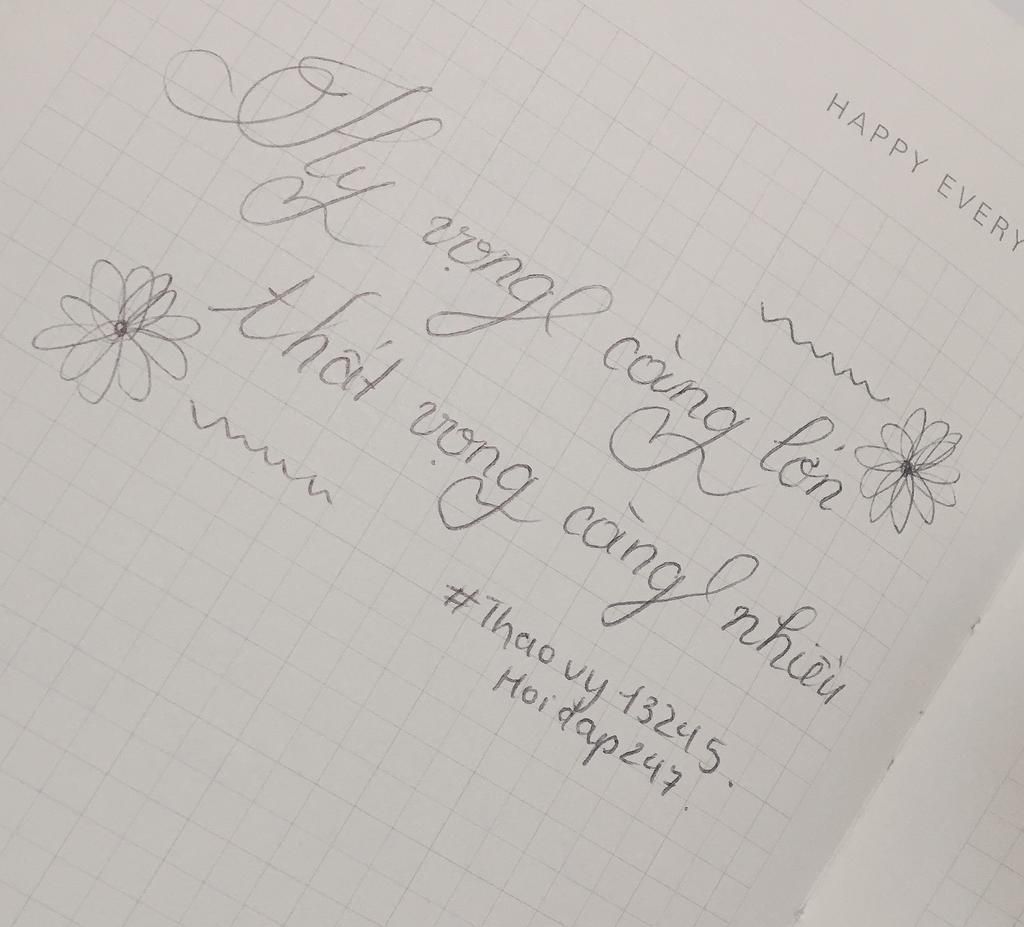 HAPPY EVERY
Hy vọng càng lớn
thất vọng càng nhiều
#Thaovy13245.
Hoidap247.